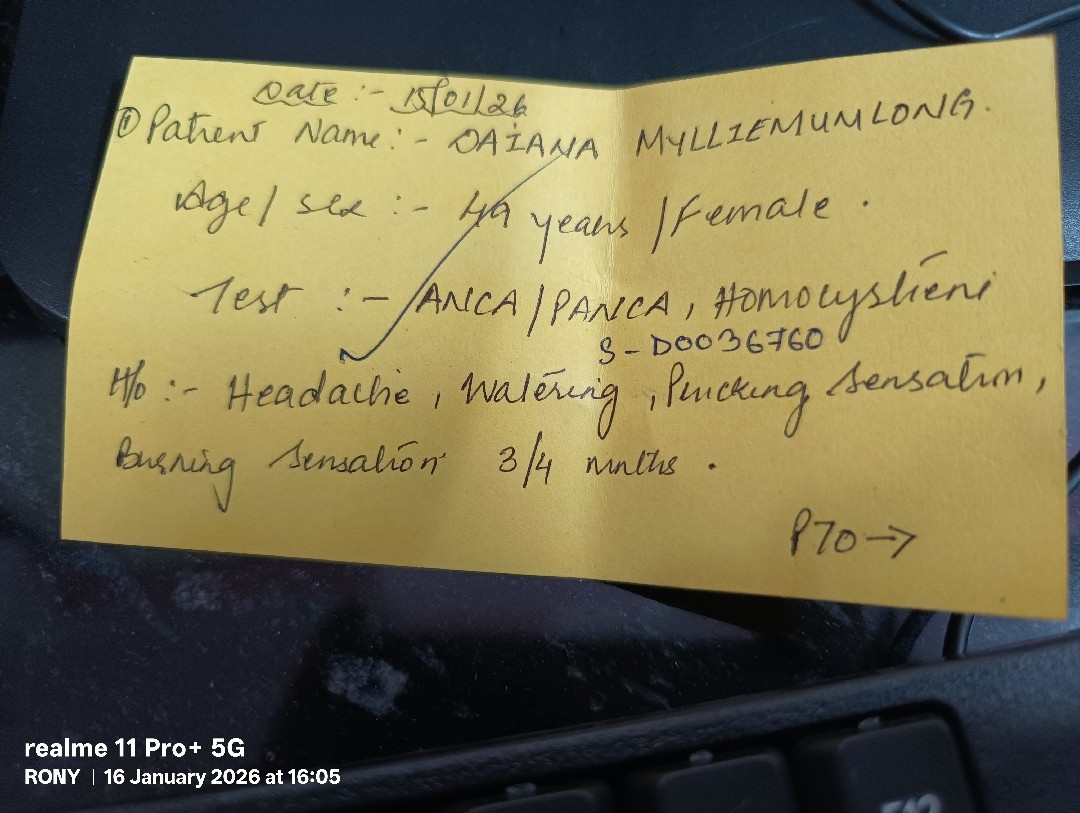 Date :- 15/01/26
① Patient Name :- DAIANA MYLLIEMUMLONG.
Age / sex :- 49 years / Female .
Test :- ANCA / PANCA , Homocystieni
S - D0036760
H/o :- Headache , Watering , Pricking sensation ,
Burning sensation 3/4 mnths .
PTO →
realme 11 Pro+ 5G
RONY | 16 January 2026 at 16:05
F12